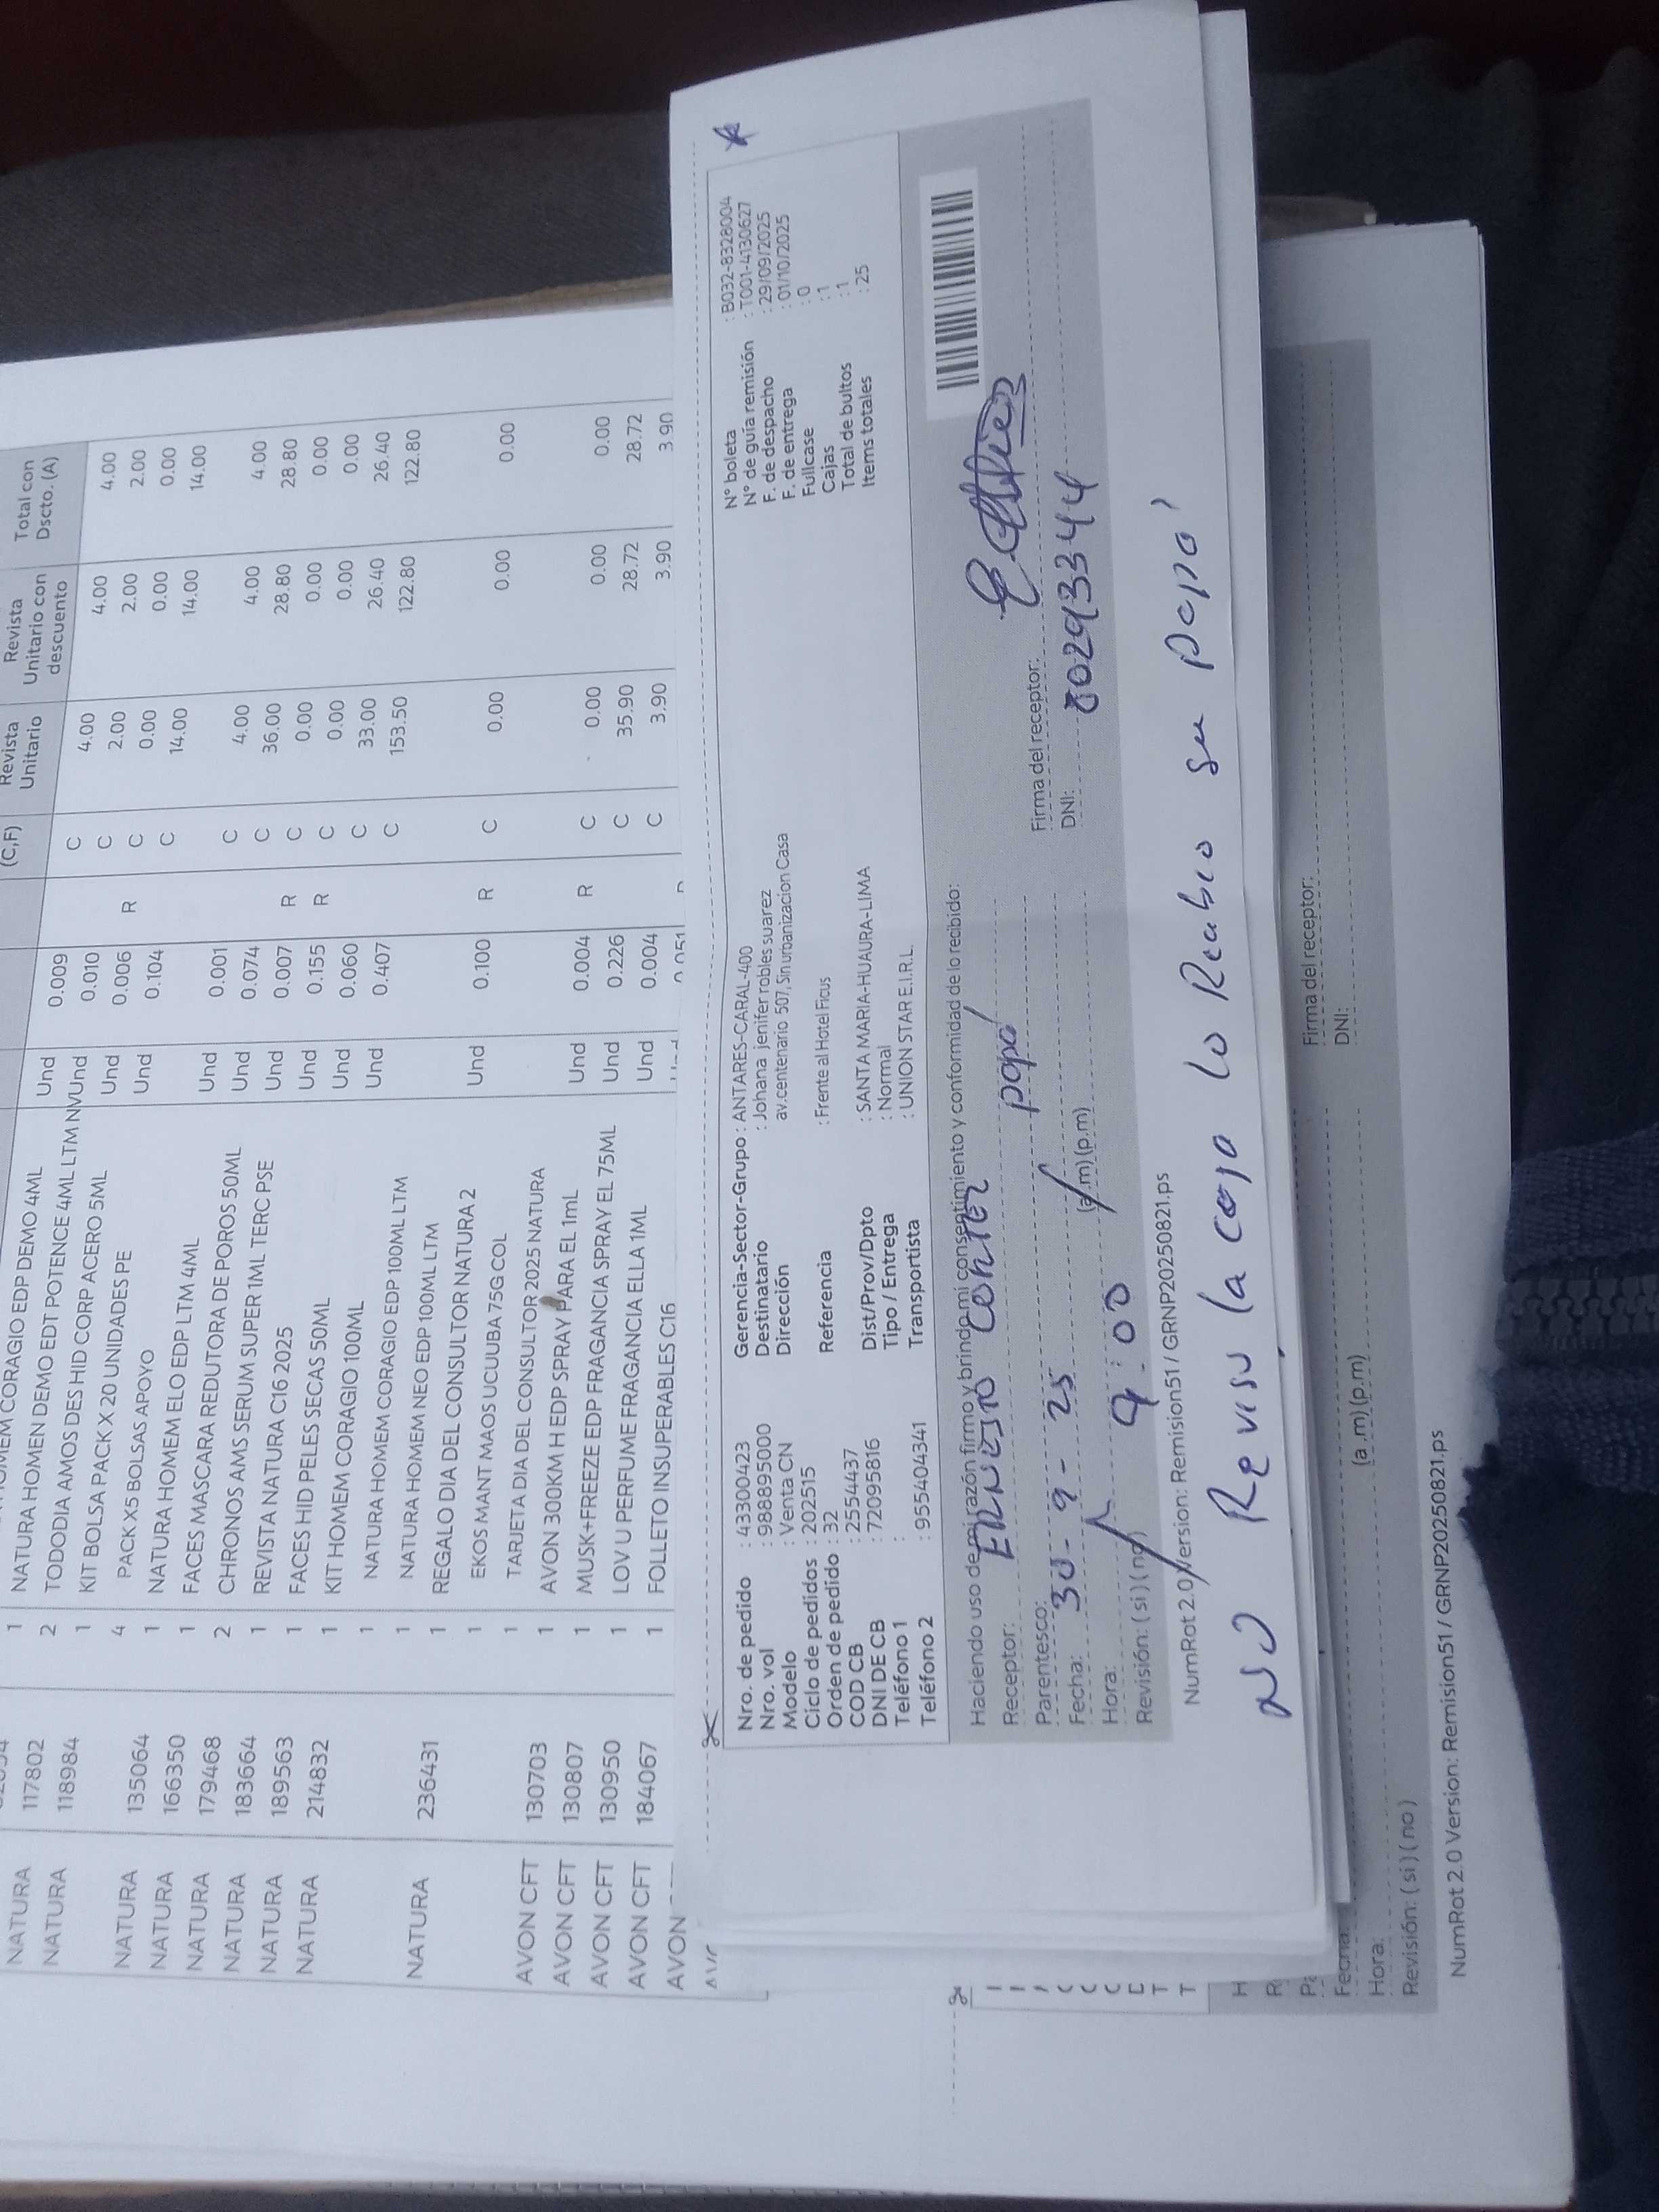 (C,F) Revista Unitario Revista Unitario con descuento Total con Dscto. (A)
NATURA 117802 1 NATURA HOMEM CORAGIO EDP DEMO 4ML Und 0.009 C 4.00 4.00 4.00
NATURA 118984 2 NATURA HOMEN DEMO EDT POTENCE 4ML LTM NV Und 0.010 C 2.00 2.00 2.00
1 TODODIA AMOS DES HID CORP ACERO 5ML Und 0.006 R C 0.00 0.00 0.00
NATURA 135064 4 KIT BOLSA PACK X 20 UNIDADES PE Und 0.104 C 14.00 14.00 14.00
PACK X5 BOLSAS APOYO
NATURA 166350 1 NATURA HOMEM ELO EDP LTM 4ML Und 0.001 C 4.00 4.00 4.00
NATURA 179468 1 FACES MASCARA REDUTORA DE POROS 50ML Und 0.074 C 36.00 28.80 28.80
NATURA 183664 2 CHRONOS AMS SERUM SUPER 1ML TERC PSE Und 0.007 R C 0.00 0.00 0.00
NATURA 189563 1 REVISTA NATURA C16 2025 Und 0.155 R C 0.00 0.00 0.00
NATURA 214832 1 FACES HID PELES SECAS 50ML Und 0.060 C 33.00 26.40 26.40
1 KIT HOMEM CORAGIO 100ML Und 0.407 C 153.50 122.80 122.80
1 NATURA HOMEM CORAGIO EDP 100ML LTM
1 NATURA HOMEM NEO EDP 100ML LTM
NATURA 236431 1 REGALO DIA DEL CONSULTOR NATURA 2 Und 0.100 R C 0.00 0.00 0.00
1 EKOS MANT MAOS UCUUBA 75G COL
1 TARJETA DIA DEL CONSULTOR 2025 NATURA
AVON CFT 130703 1 AVON 300KM H EDP SPRAY PARA EL 1mL Und 0.004 R C 0.00 0.00 0.00
AVON CFT 130807 1 MUSK+FREEZE EDP FRAGANCIA SPRAY EL 75ML Und 0.226 C 35.90 28.72 28.72
AVON CFT 130950 1 LOV U PERFUME FRAGANCIA ELLA 1ML Und 0.004 C 3.90 3.90 3.90
AVON CFT 184067 1 FOLLETO INSUPERABLES C16
AVON
Nro. de pedido : 43300423 Gerencia-Sector-Grupo : ANTARES-CARAL-400 N° boleta : B032-8328004
Nro. vol : 9888895000 Destinatario : Johana jenifer robles suarez N° de guía remisión : T001-4130627
Modelo : Venta CN Dirección av.centenario 507, Sin urbanizacion Casa F. de despacho : 29/09/2025
Ciclo de pedidos : 202515 F. de entrega : 01/10/2025
Orden de pedido : 32 Referencia : Frente al Hotel Ficus Fullcase : 0
COD CB : 2554437 Cajas : 1
DNI DE CB : 72095816 Dist/Prov/Dpto : SANTA MARIA-HUAURA-LIMA Total de bultos : 1
Teléfono 1 : Tipo / Entrega : Normal Items totales : 25
Teléfono 2 : 955404341 Transportista : UNION STAR E.I.R.L.
Haciendo uso de mi razón firmo y brindo mi consentimiento y conformidad de lo recibido:
Receptor: ERNESTO
Parentesco: papá Firma del receptor:
Fecha: 30-9-25 DNI: 80293344
Hora: 9:00 (a .m) (p.m)
Revisión: ( si ) ( no )
NumRot 2.0 Version: Remision51 / GRNP20250821.ps
NO Reviso la caja lo Reabio su papá
Firma del receptor:
Fecha: DNI:
Hora: (a .m) (p.m)
Revisión: ( si ) ( no )
NumRot 2.0 Version: Remision51 / GRNP20250821.ps